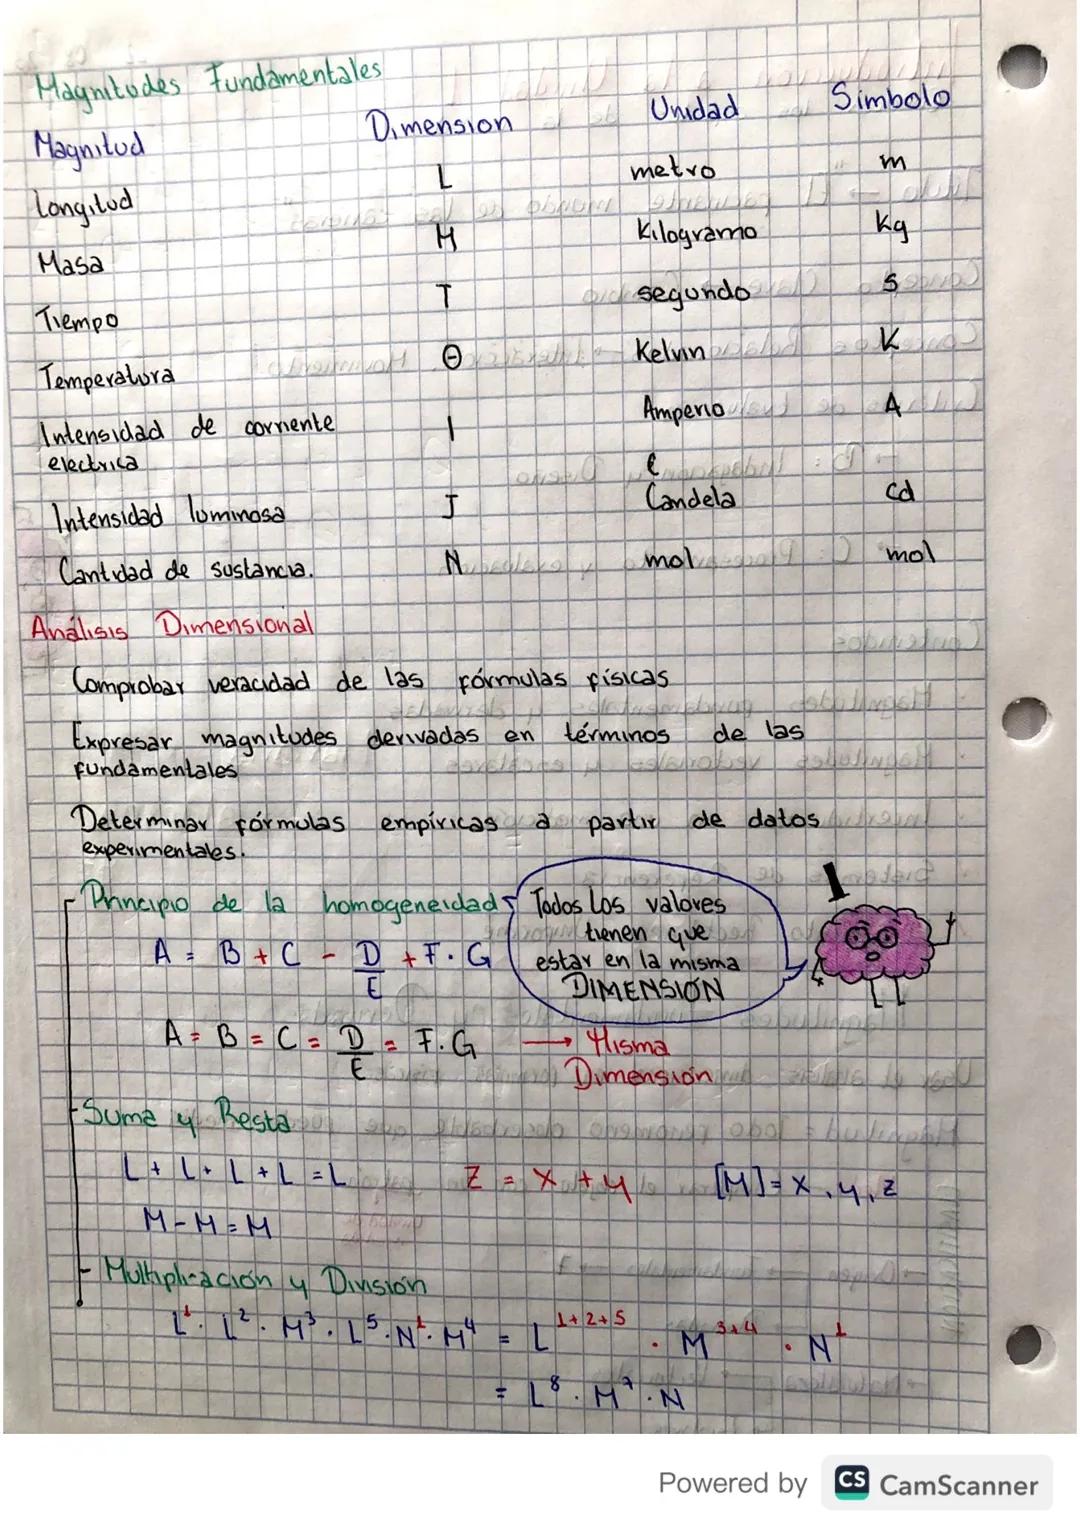 Magnitudes Fundamentales
Magnitud Dimension Unidad Simbolo
Longitud L metro m
Masa M Kilogramo Kg
Tiempo T segundo s
Temperatura Θ Kelvin K
Intensidad de corriente I Amperio A
electrica
Intensidad luminosa J Candela cd
Cantidad de sustancia. N mol mol
Análisis Dimensional
Comprobar veracidad de las fórmulas físicas
Expresar magnitudes derivadas en términos de las
fundamentales
Determinar fórmulas empíricas a partir de datos
experimentales.
Principio de la homogeneidad
Todos los valores
tienen que
estar en la misma
DIMENSIÓN
A = B + C - D/E + F . G
A = B = C = D/E = F. G → Misma
Dimensión
- Suma y Resta
L + L + L + L = L Z = X + Y [M] = X, Y, Z
M - M = M
- Multiplicación y División
L¹ . L² . M³ . L⁵ . N¹ . M⁴ = L¹⁺²⁺⁵ . M³⁺⁴ . N¹
= L⁸ . M⁷ . N
Powered by CS CamScanner